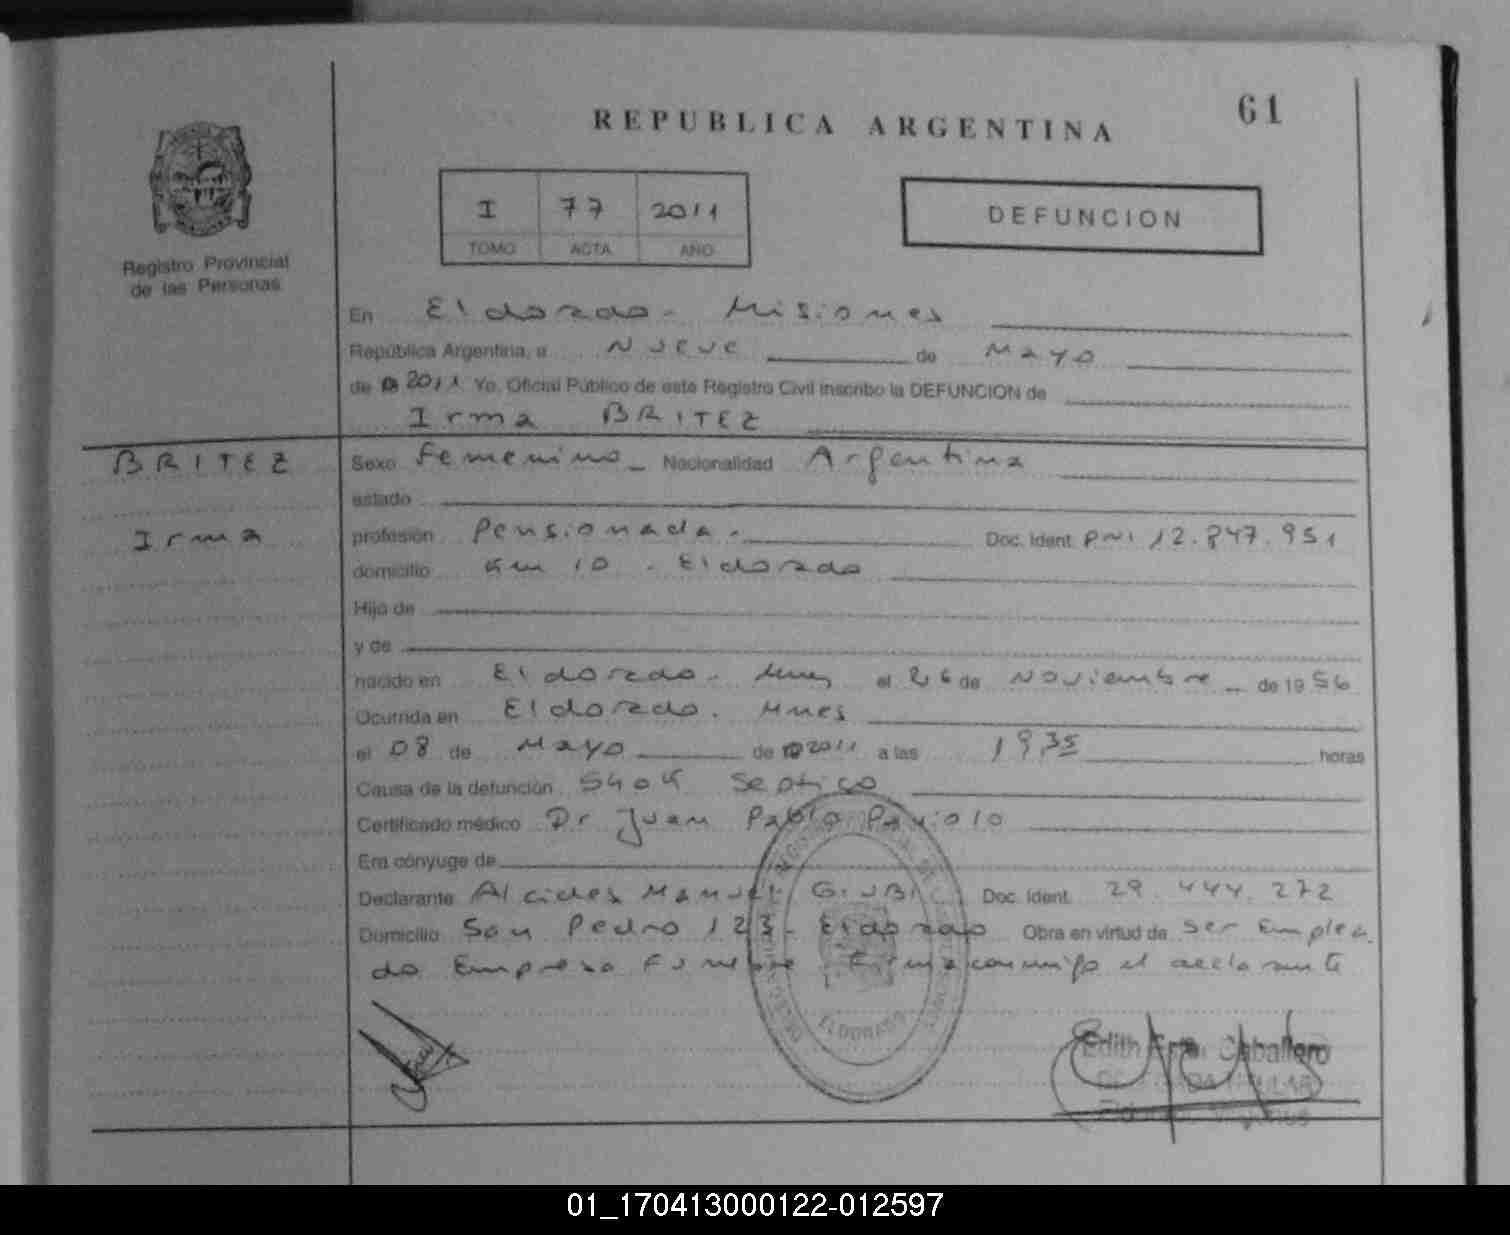 61
REPUBLICA ARGENTINA
I 77 2011
TOMO ACTA AÑO
DEFUNCION
Registro Provincial
de las Personas
En Eldorado - Misiones
República Argentina, a Nueve de Mayo
de 2011 Yo, Oficial Público de este Registro Civil inscribo la DEFUNCION de
Irma BRITEZ
BRITEZ
Irma
Sexo Femenino Nacionalidad Argentina
estado
profesión Pensionada. Doc. Ident. DNI 12.847.951
domicilio Km 10 - Eldorado
Hijo de
y de
nacido en Eldorado - Mnes el 26 de Noviembre de 1956
Ocurrida en Eldorado. Mnes
el 08 de Mayo de 2011 a las 19,35 horas
Causa de la defunción Shok Septico
Certificado médico Dr Juan Pablo
Era cónyuge de
Declarante Alcides Manuel Doc. Ident. 29.444.272
Domicilio San Pedro 123 - Eldorado Obra en virtud de ser Emplea
do Empresa Funebre Firma conmigo el declarante
ELDORADO
Edith Caballero
01_170413000122-012597